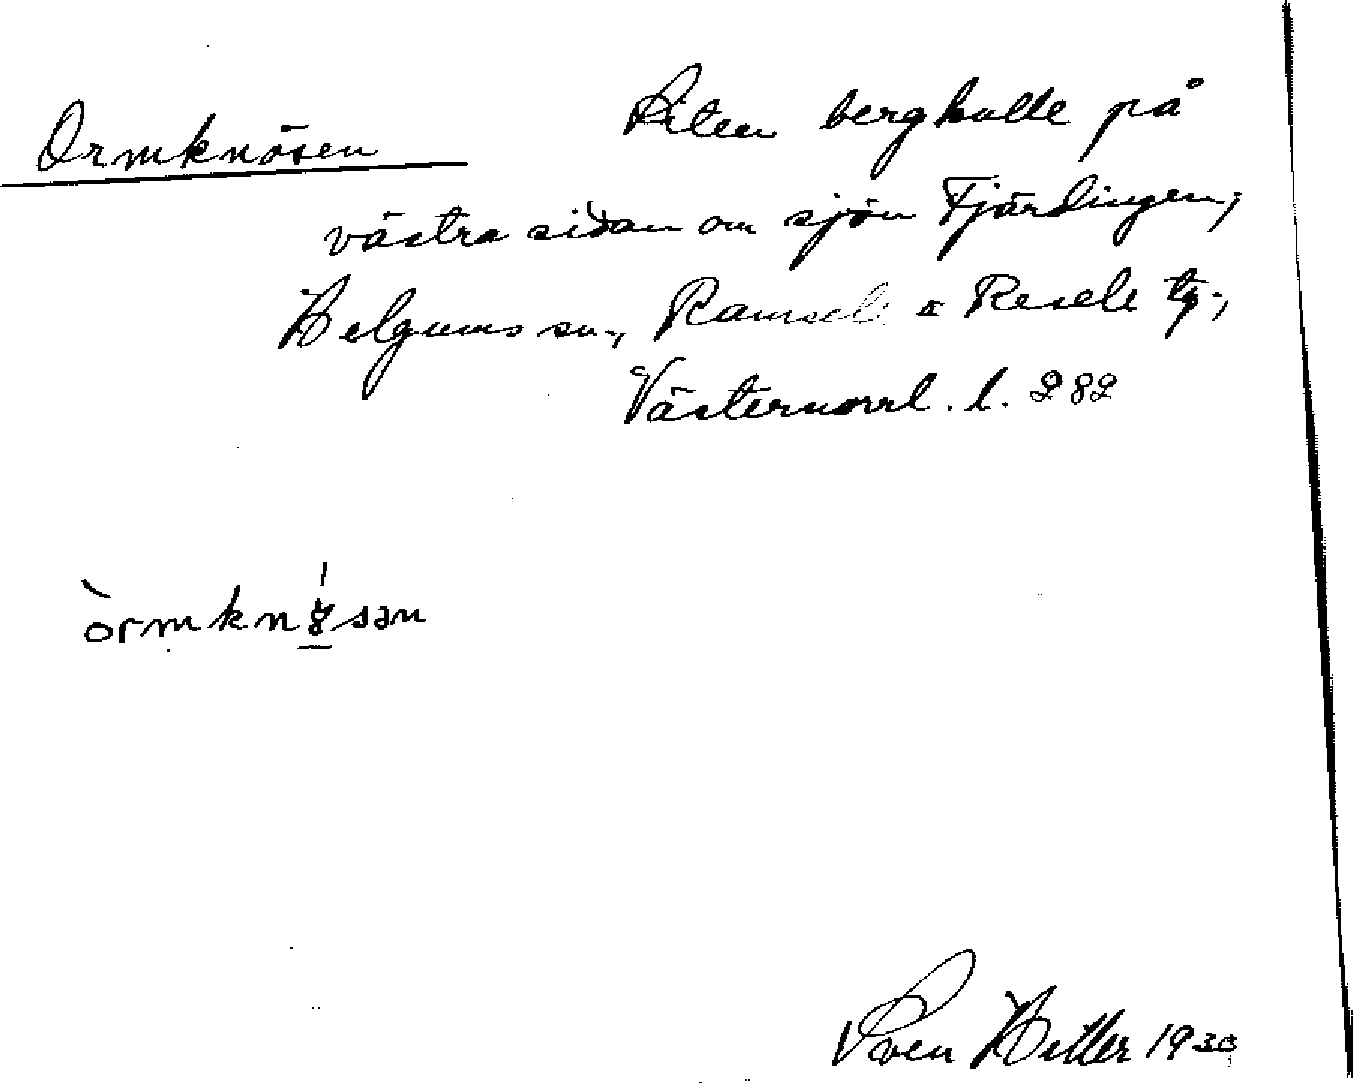 Ormknösen Liten bergkulle på
västra sidan om sjön Fjärdingen,
Helgums sn., Ramsele o Resele tg.,
Västernorrl. l. 282
Sven 1930